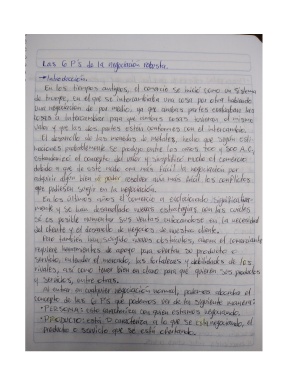 Las 6 P's de la negociación robusta.
→ Introducción.
En los tiempos antiguos, el comercio se inicio como un sistema
de trueque, en el que se intercambiaba una cosa por otra habiendo
una negociación de por medio, ya que ambas partes evaluaban las
cosas a intercambiar para que ambas cosas tuvieran el mismo
valor y que las dos partes estén conformes con el intercambio.
El desarrollo de las monedas de metales, hecho que según esti-
maciones probablemente se produjo entre los años 700 y 500 A.C,
estandarizó el concepto del valor y simplificó mucho el comercio
debido a que de este modo era más fácil la negociación por
adquirir algún bien el poder resolver aún más fácil los conflictos
que pudieran surgir en la negociación.
En los últimos años el comercio a evolucionado significativa-
mente y se han desarrollado nuevas estrategias con las cuales
es posible maximizar sus ventas enfocándose en la necesidad
del cliente y el desarrollo de negocios de nuestro cliente.
Pero también han surgido nuevos obstáculos, ahora el comerciante
requiere herramientas de apoyo para ofertar su producto o
servicio, entender el mercado, las fortalezas y debilidades de los
rivales, así como tener bien en claro para qué quieren sus productos
y servicios, entre otras.
Al entrar en cualquier negociación normal, podemos abordar el
concepto de las 6 P's que podemos ver de la siguiente manera:
• PERSONAS: esta característica con quien estamos negociando.
• PRODUCTO: esta caracteriza a lo que se está negociando, el
producto o servicio que se está ofertando.